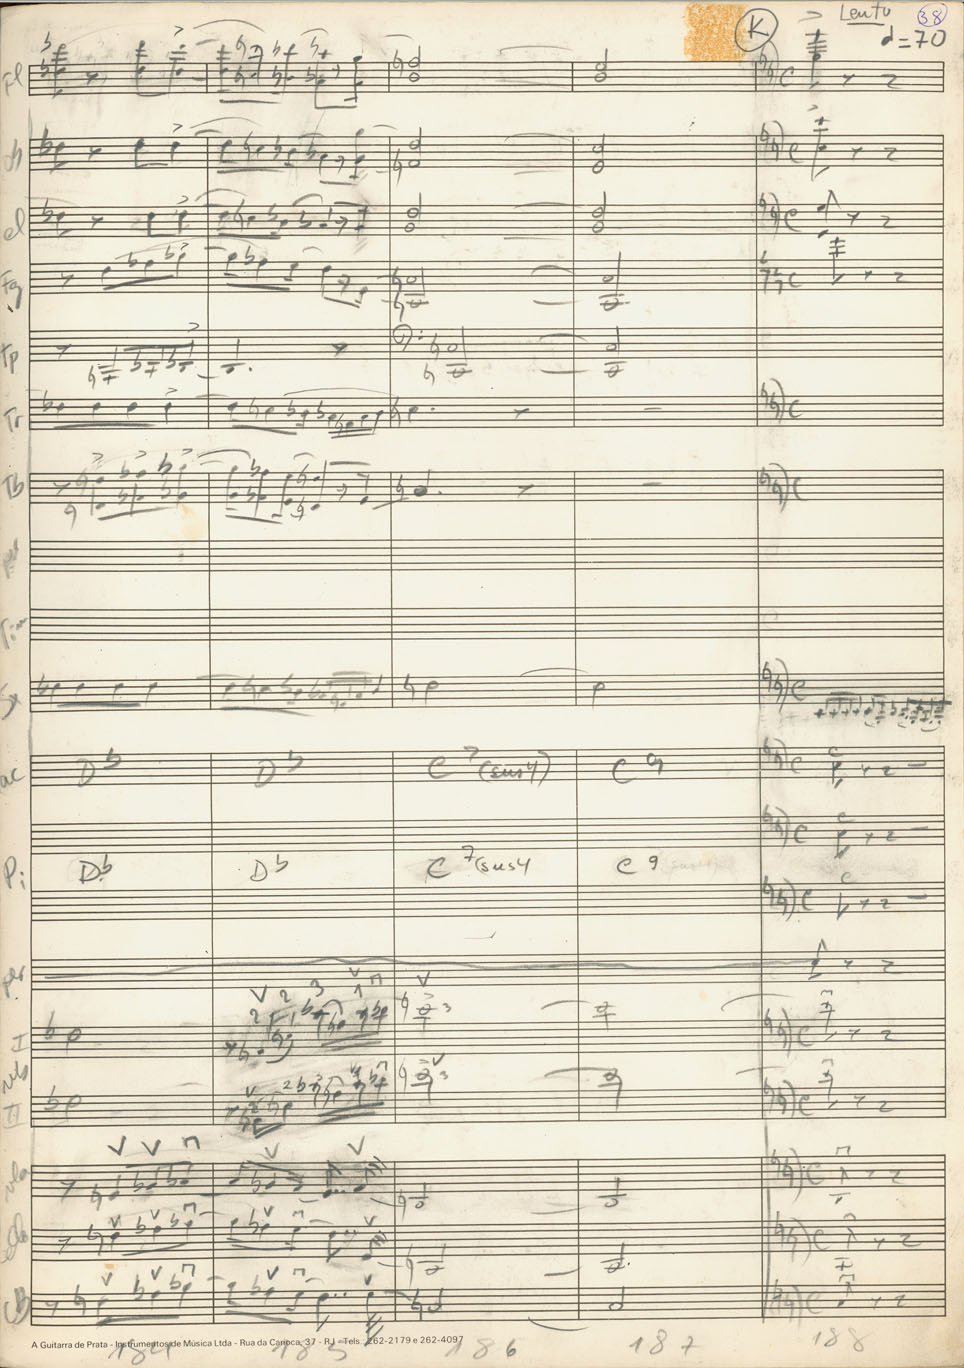 K Lento 38
♩=70
Fl
Fg
Tp
Tr
Tb
ac D♭ D♭ C7(sus4) C9 C
C
Pi D♭ D♭ C7(sus4 C9 C
per
2 3 1
I
vls
II
vla
CB
A Guitarra de Prata - Instrumentos de Música Ltda - Rua da Carioca, 37 - RJ - Tels.: 262-2179 e 262-4097
184 185 186 187 188